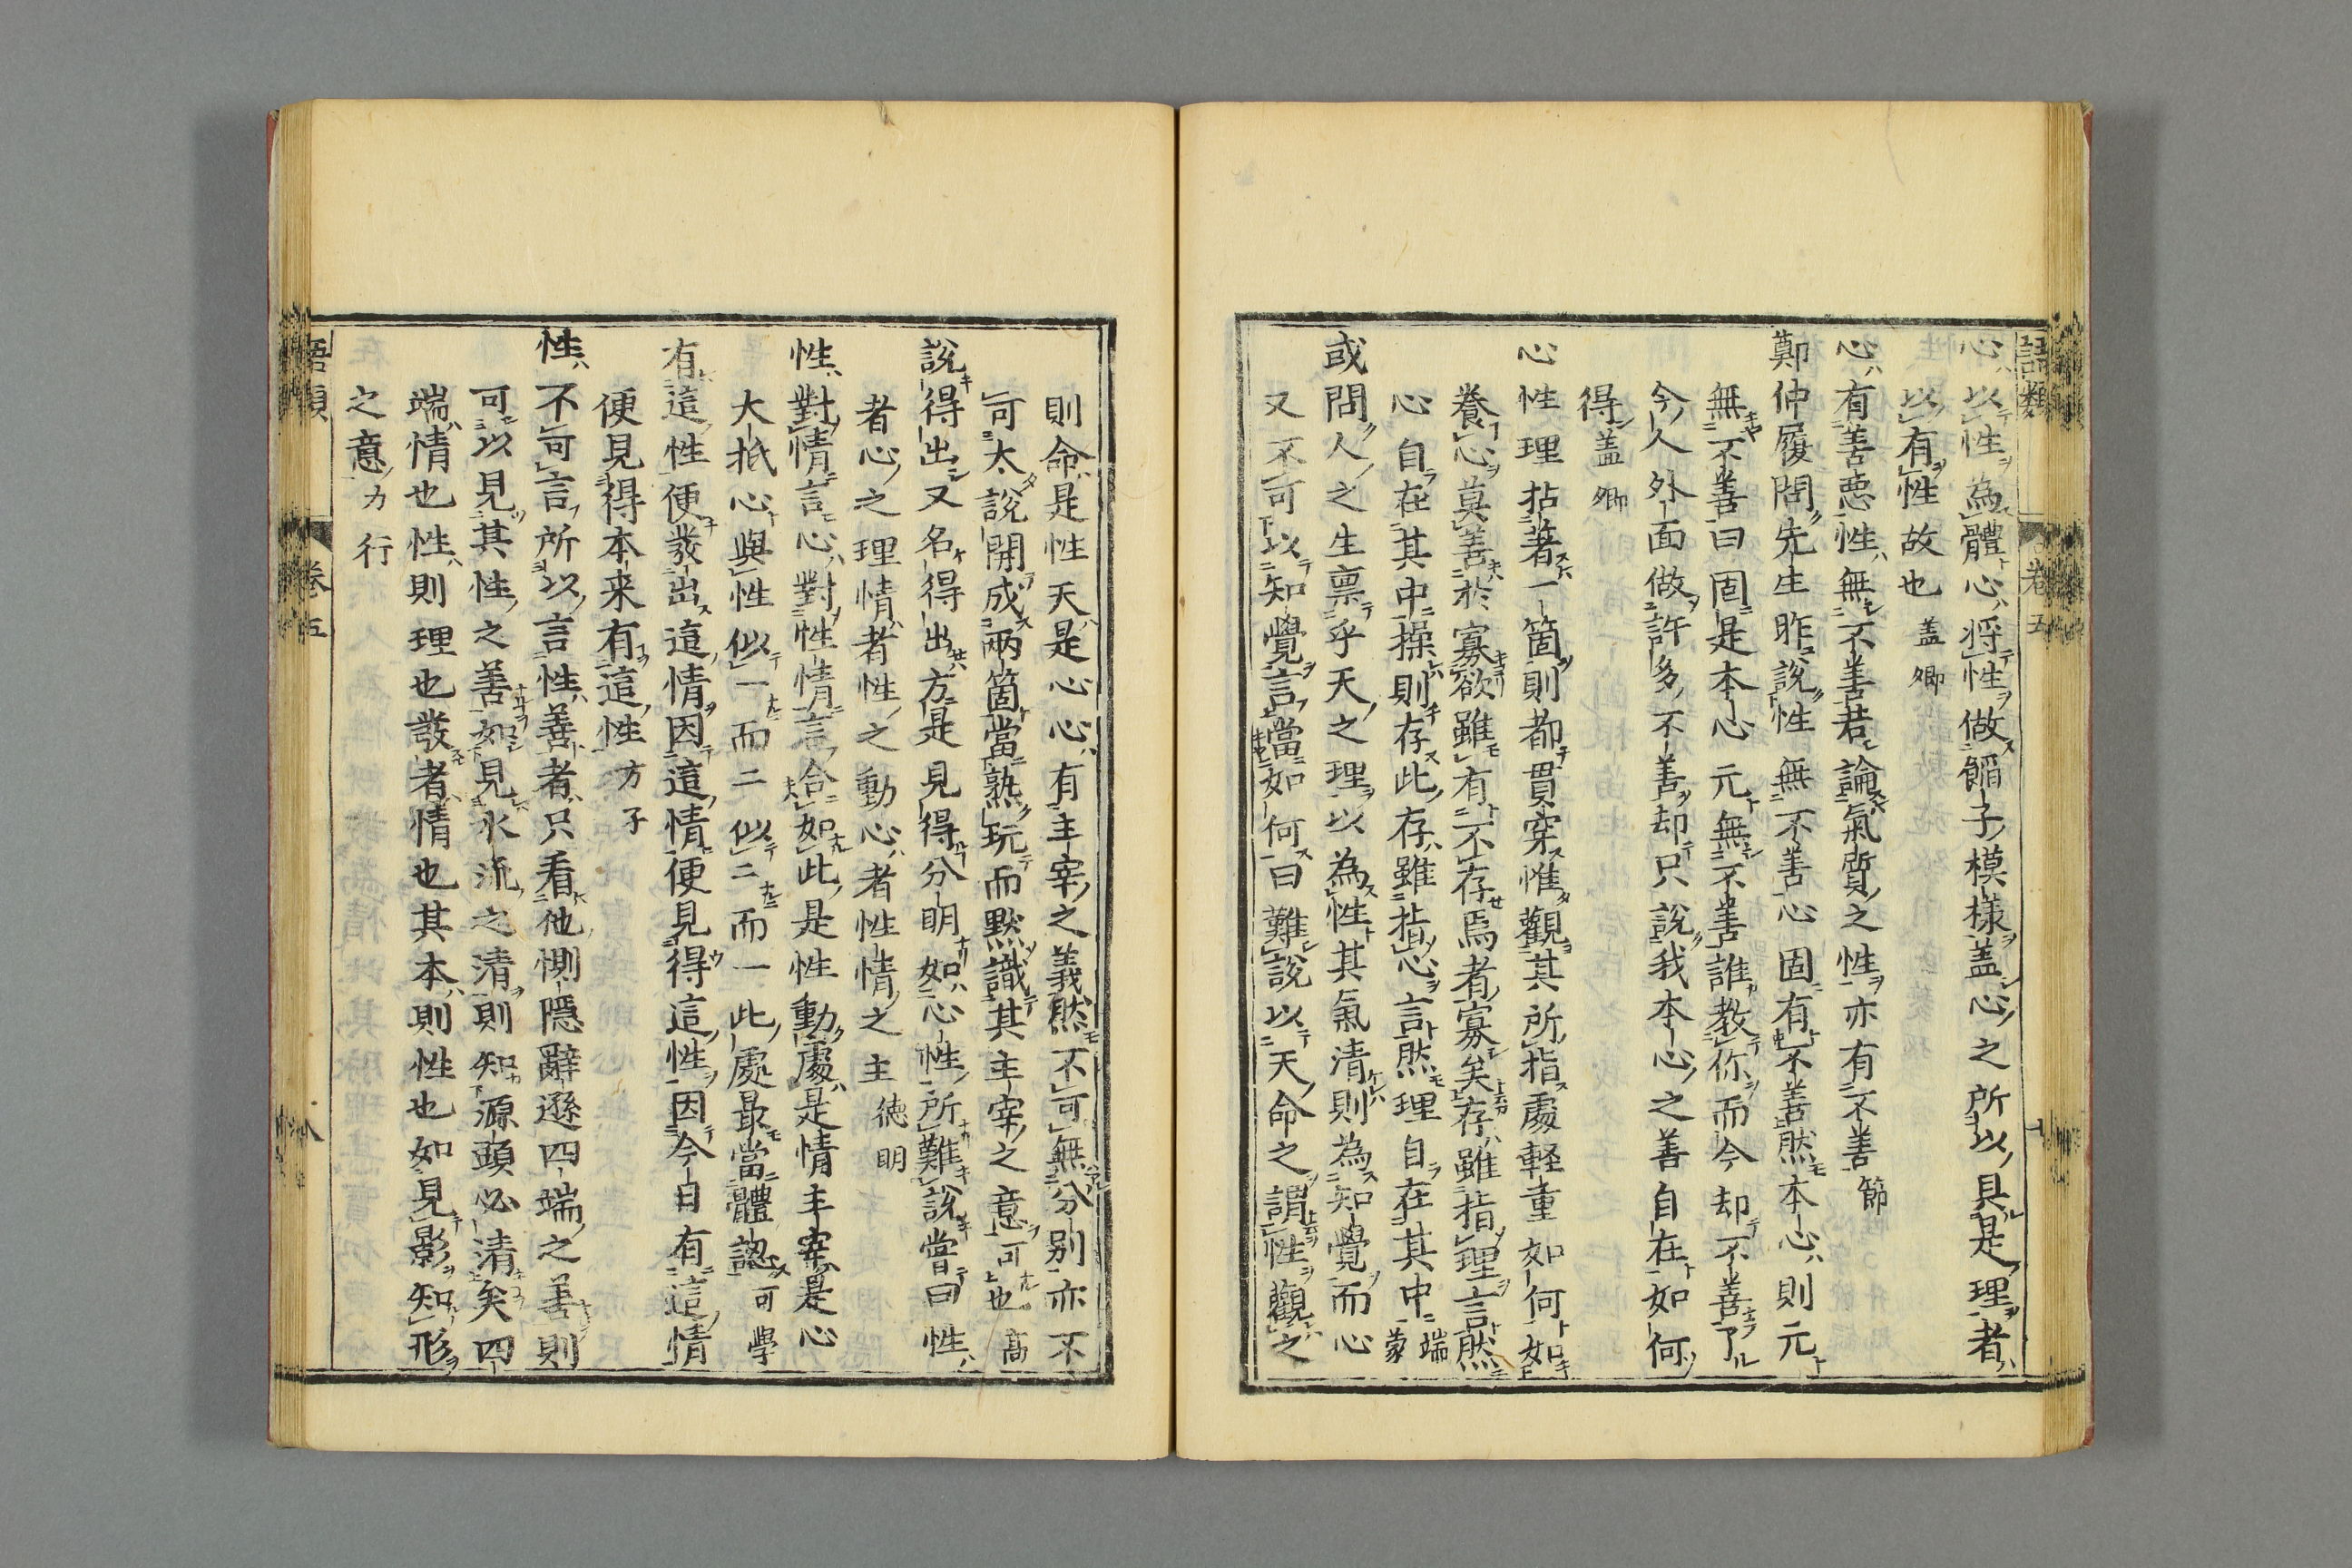 語類 卷五
心以性為體心将性做餡子模樣盖心之所以具是理者
以有性故也 盖卿
心有善悪性無不善若論氣質之性亦有不善 節
鄭仲履問先生昨說性無不善心固有不善然本心則元
無不善曰固是本心元無不善誰教你而今却不善了
今人外面做許多不善却只說我本心之善自在如何
得 盖卿
心性理拈著一箇則都貫穿惟觀其所指處輕重如何如
養心莫善於寡欲雖有不存焉者寡矣存雖指理言然
心自在其中操則存此存雖指心言然理自在其中 端蒙
或問人之生禀乎天之理以為性其氣清則為知覺而心
又不可以知覺言當如何曰難說以天命之謂性觀之
則命是性天是心心有主宰之義然不可無分别亦不
可太說開成兩箇當熟玩而黙識其主宰之意可也 高
說得出又名得出方是見得分明如心性所難說嘗曰性
者心之理情者性之動心者性情之主 徳明
性對情言心對性情言合如此是性動處是情主宰是心
大抵心與性似一而二似二而一此處最當體認 可學
有這性便發出這情因這情便見得這性因今日有這情
便見得本来有這性 方子
性不可言所以言性善者只看他惻隱辭遜四端之善則
可以見其性之善如見水流之清則知源頭必清矣四
端情也性則理也發者情也其本則性也如見影知形
之意 力行
語類 卷五 八